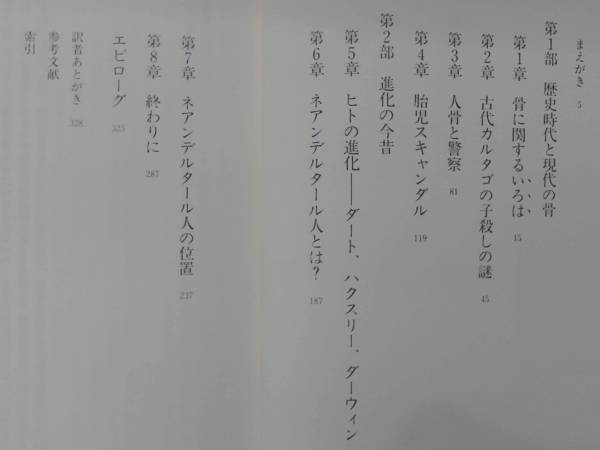 まえがき 5
第1部 歴史時代と現代の骨
第1章 骨に関するいろは 15
第2章 古代カルタゴの子殺しの謎 45
第3章 人骨と警察 81
第4章 胎児スキャンダル 119
第2部 進化の今昔
第5章 ヒトの進化――ダート、ハクスリー、ダーウィン
第6章 ネアンデルタール人とは? 187
第7章 ネアンデルタール人の位置 237
第8章 終わりに 287
エピローグ 325
訳者あとがき 328
参考文献
索引